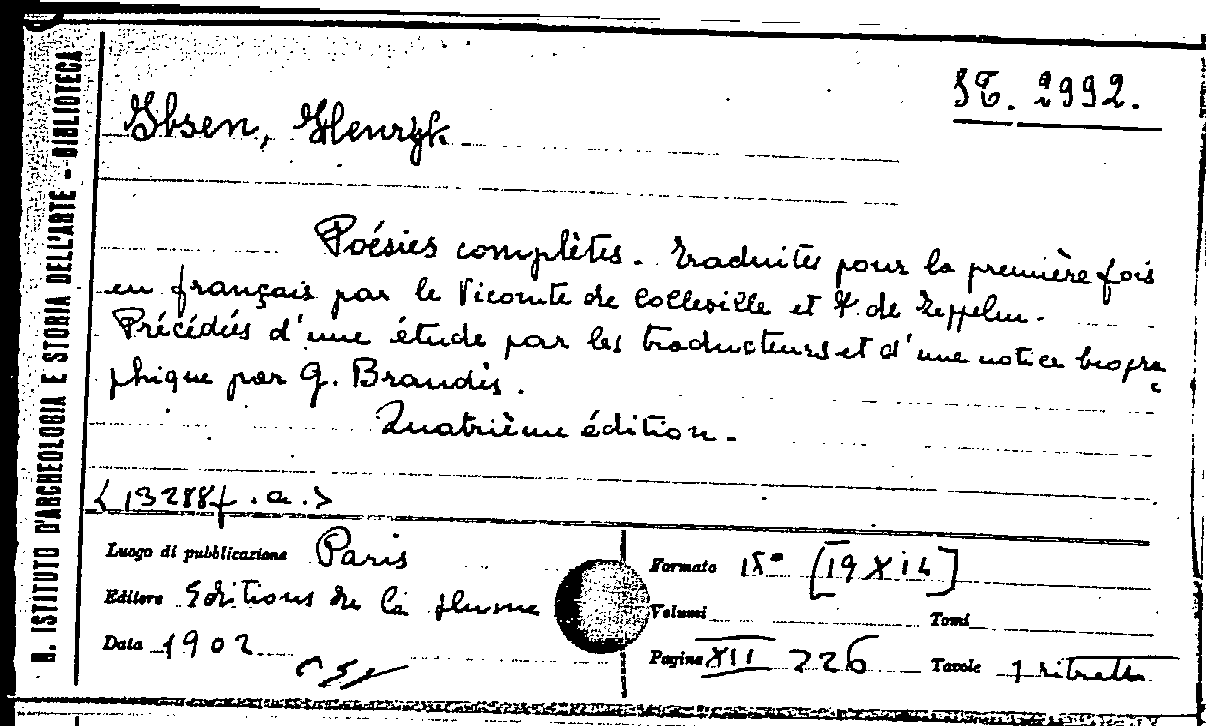 R. ISTITUTO D'ARCHEOLOGIA E STORIA DELL'ARTE - BIBLIOTECA
Ibsen, Henryk
Poésies complètes. Traduites pour la première fois
en français par le Vicomte de Colleville et F. de Zeppelin.
Précédées d'une étude par les traducteurs et d'une notice biogra
phique par G. Brandès.
Quatrième édition.
Luogo di pubblicazione Paris
Editore Editions de la plume
Data 1902
Formato [19 x 12]
Volumi Tomi
Pagine XII 226 Tavole 1 ritratto